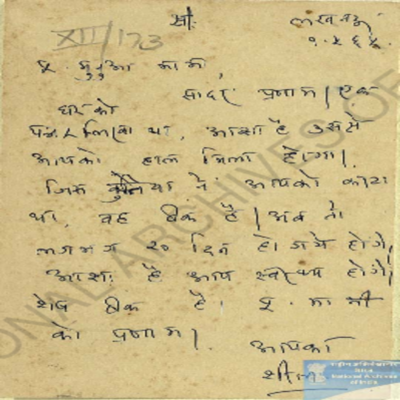 श्री:
लखनऊ
XII/173
९.५.६६
पू. मुनुआ मामा,
सादर प्रणाम। एक
घर को
पत्र लिखा था, आशा है उससे
आपको हाल मिला होगा।
जिस कुतिया ने आपको काटा
था, वह ठीक है। अब तो
लगभग २० दिन हो गये होंगे,
आशा है आप स्वस्थ होंगे।
शेष ठीक है। पू. मामी
को प्रणाम।
आपका
शील
NATIONAL ARCHIVES OF
राष्ट्रीय अभिलेखागार
National Archives